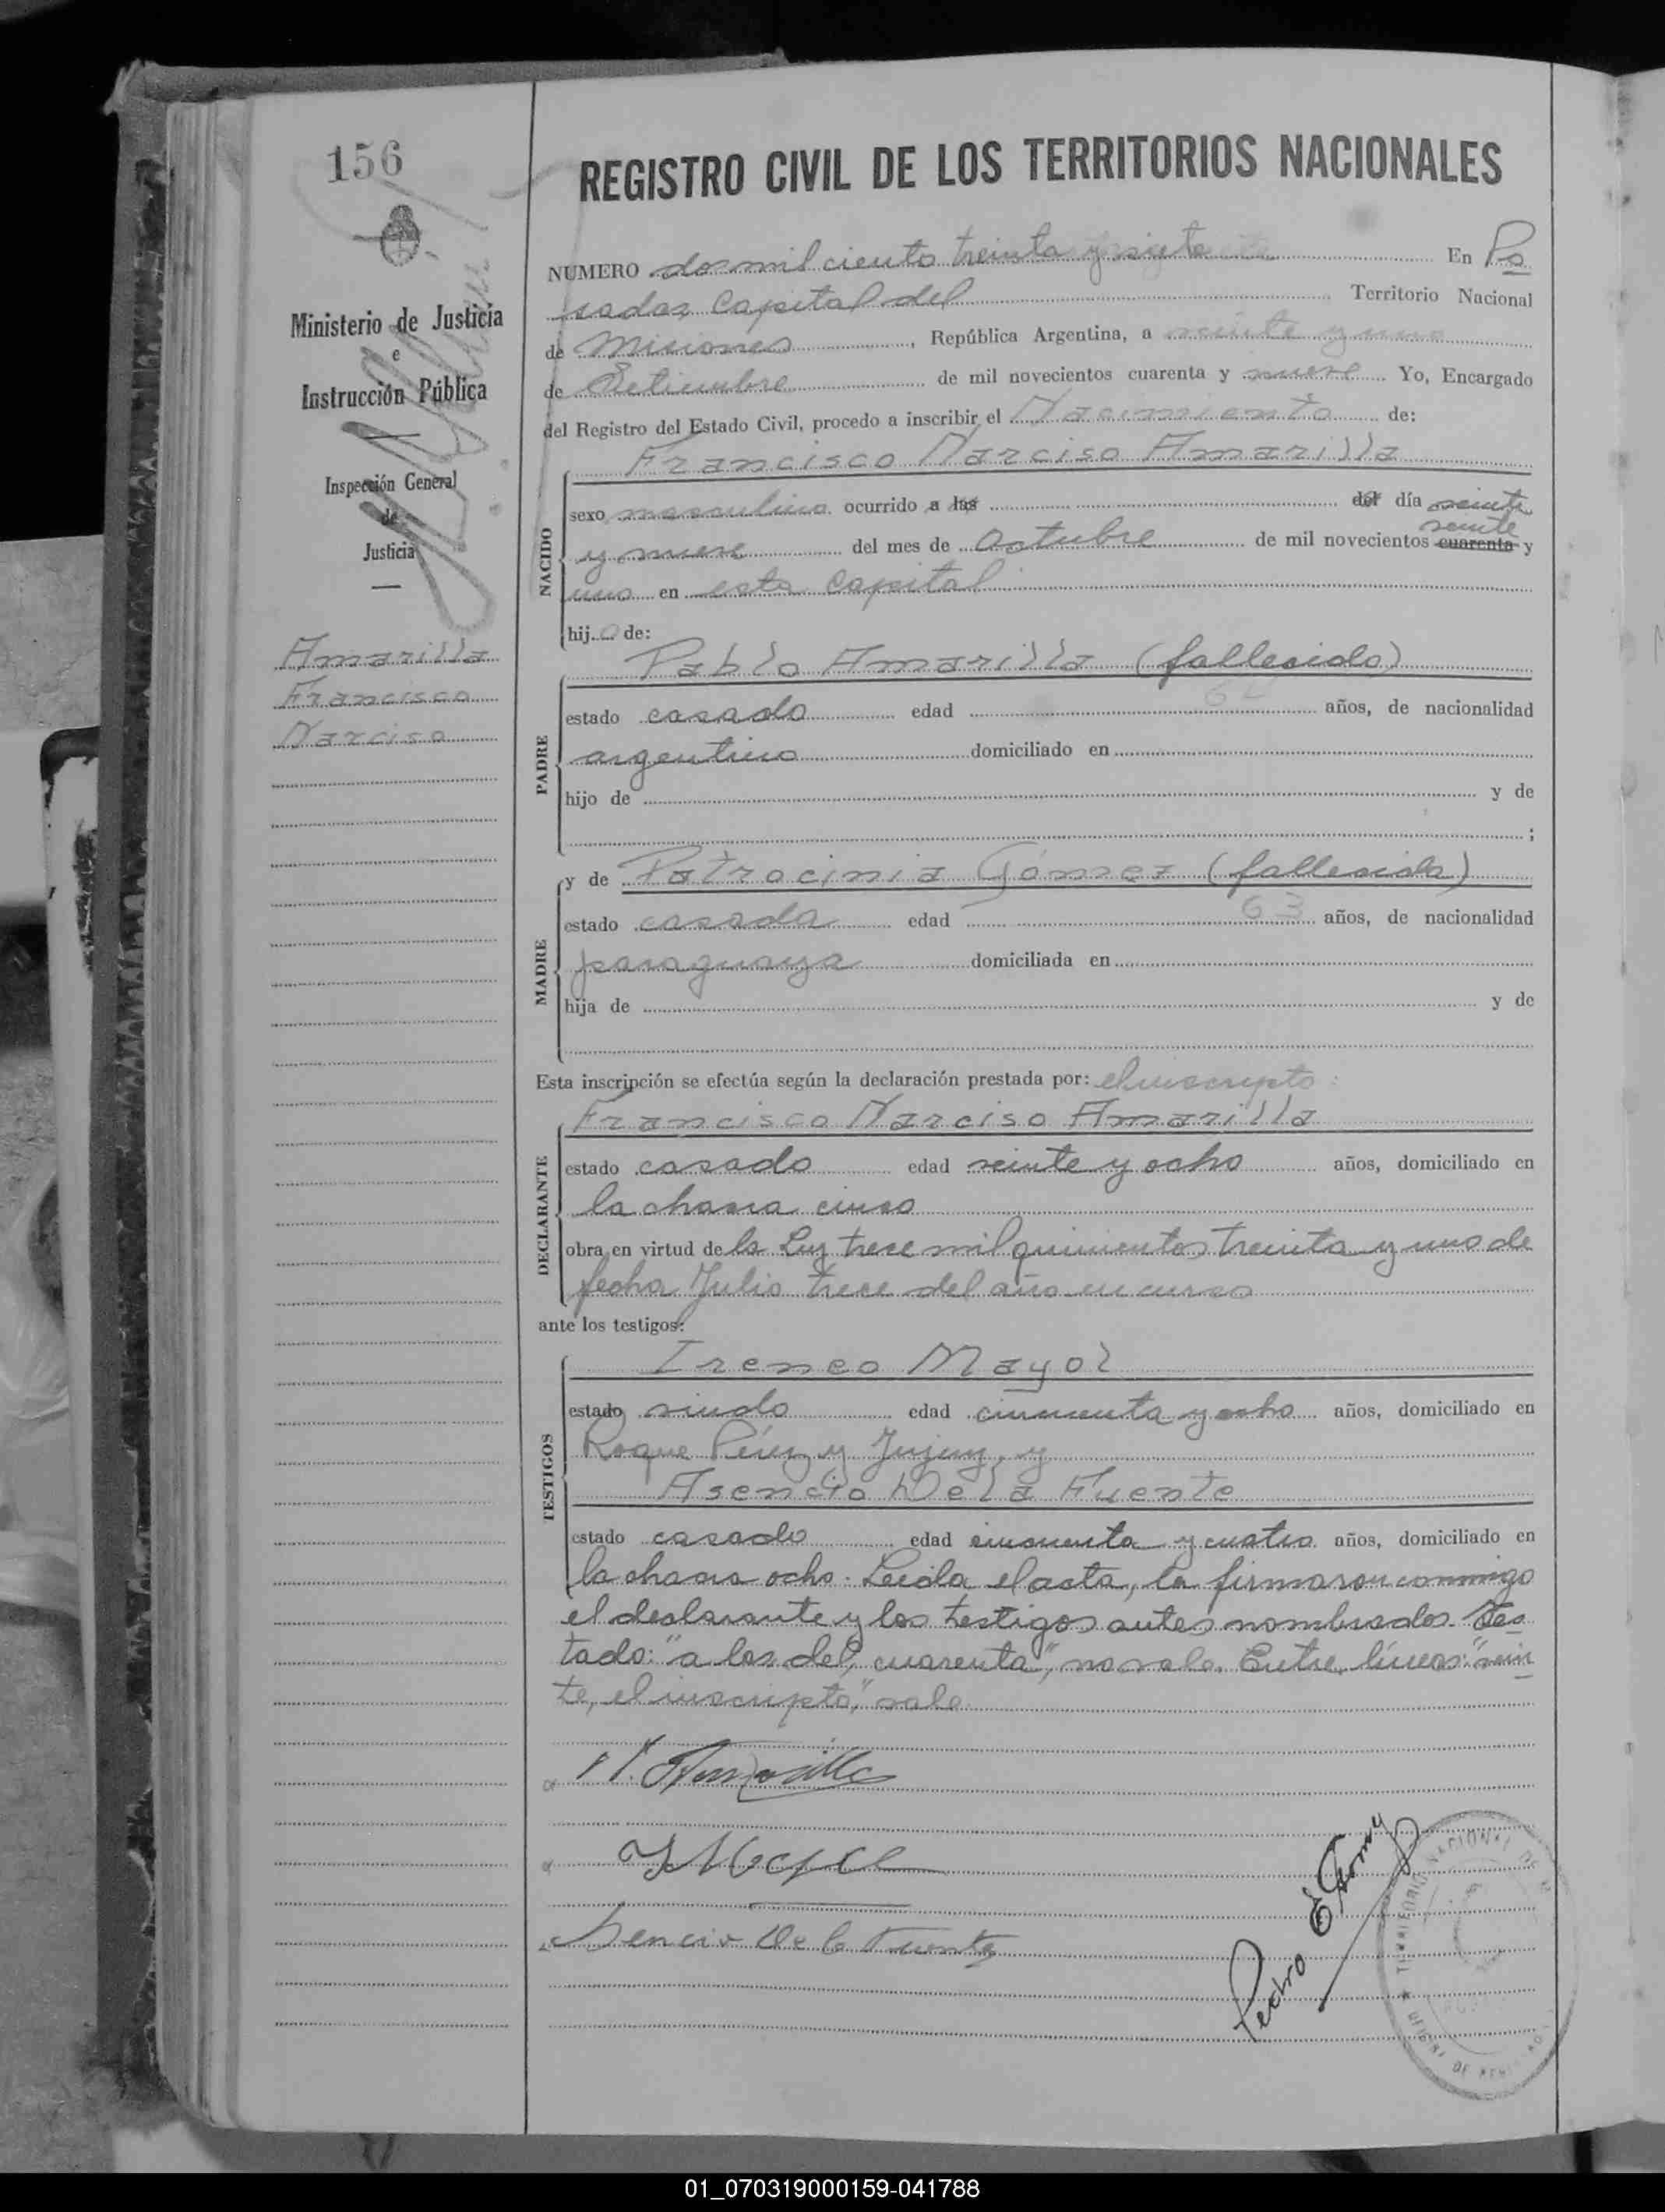 156
REGISTRO CIVIL DE LOS TERRITORIOS NACIONALES
Ministerio de Justicia
e
Instrucción Pública
Inspección General
de
Justicia
Amarilla
Francisco
Narciso
NUMERO dos mil ciento treinta y siete En Po
sadas Capital del Territorio Nacional
de Misiones, República Argentina, a veinte y uno
de Setiembre de mil novecientos cuarenta y nueve Yo, Encargado
del Registro del Estado Civil, procedo a inscribir el Nacimiento de:
NACIDO
Francisco Narciso Amarilla
sexo masculino ocurrido a las del día veinte
veinte
y nueve del mes de Octubre de mil novecientos cuarenta y
uno en esta Capital
hijo de:
PADRE
Pablo Amarilla (fallecido)
estado casado edad años, de nacionalidad
argentino domiciliado en
hijo de y de
;
MADRE
y de Patrocinia Gómez (fallecida)
estado casada edad 63 años, de nacionalidad
paraguaya domiciliada en
hija de y de
Esta inscripción se efectúa según la declaración prestada por: el inscripto:
DECLARANTE
Francisco Narciso Amarilla
estado casado edad veinte y ocho años, domiciliado en
la chacra cinco
obra en virtud de la Ley trece mil quinientos treinta y uno de
fecha Julio trece del año en curso
ante los testigos:
TESTIGOS
Ireneo Mayol
estado viudo edad cincuenta y ocho años, domiciliado en
Roque Pérez y Jujuy, y
Asencio De la Fuente
estado casado edad cincuenta y cuatro años, domiciliado en
la chacra ocho. Leida el acta, la firmaron conmigo
el declarante y los testigos antes nombrados. Tes
tado: "a las del, cuarenta", no vale. Entre líneas: "vein
te, el inscripto," vale
N. Amarilla
I Mayol
Asencio De la Fuente
Pedro E
TERRITORIO NACIONAL DE
01_070319000159-041788